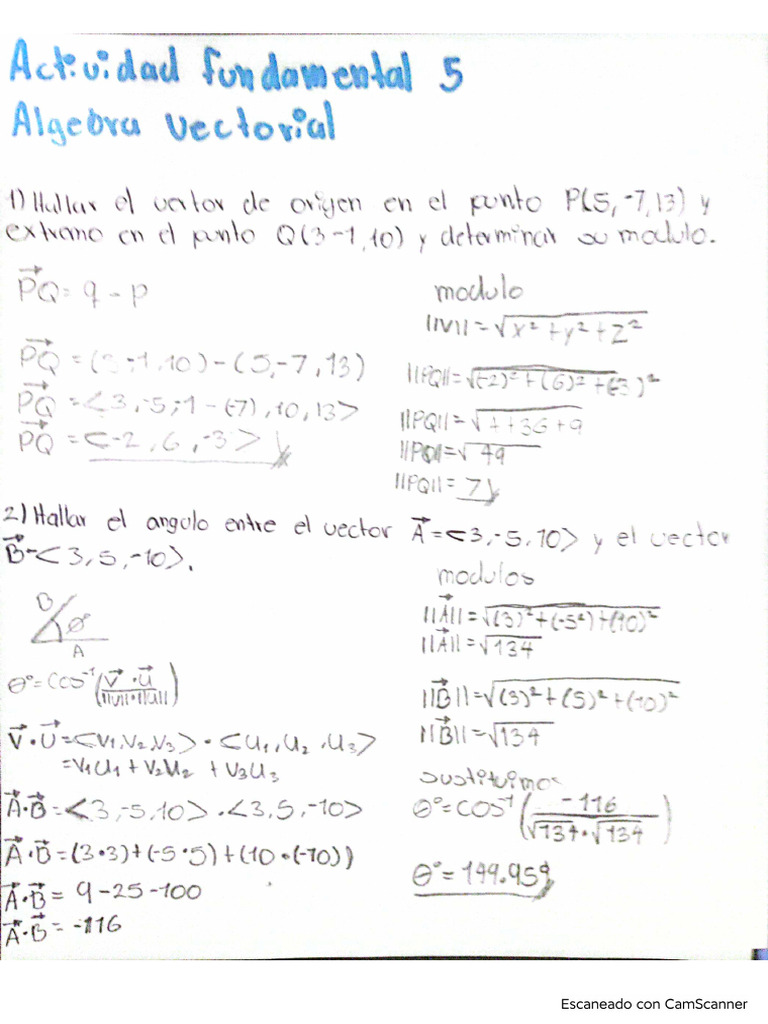 Actividad fundamental 5
Algebra vectorial
1) Hallar el vector de origen en el punto P(5,-7,13) y
extremo en el punto Q(3-1,10) y determinar su modulo.
PQ = q - p
PQ = (3;-1,10) - (5,-7,13)
PQ = <3,-5;-1-(-7),10,13>
PQ = <-2,6,-3>
modulo
||V|| = √x² + y² + z²
||PQ|| = √(-2)² + (6)² + (-3)²
||PQ|| = √4+36+9
||PQ|| = √49
||PQ|| = 7
2) Hallar el angulo entre el vector A = <3,-5,10> y el vector
B = <3,5,-10>.
B
θ°
A
θ° = cos⁻¹(V·U / ||V||·||U||)
V·U = <V₁,V₂,V₃> · <U₁,U₂,U₃>
= V₁U₁ + V₂U₂ + V₃U₃
A·B = <3,-5,10> · <3,5,-10>
A·B = (3·3)+(-5·5)+(10·(-10))
A·B = 9-25-100
A·B = -116
modulos
||A|| = √(3)²+(-5²)+(10)²
||A|| = √134
||B|| = √(3)²+(5)²+(10)²
||B|| = √134
sustituimos
θ° = cos⁻¹(-116 / √134·√134)
θ° = 149.959
Escaneado con CamScanner